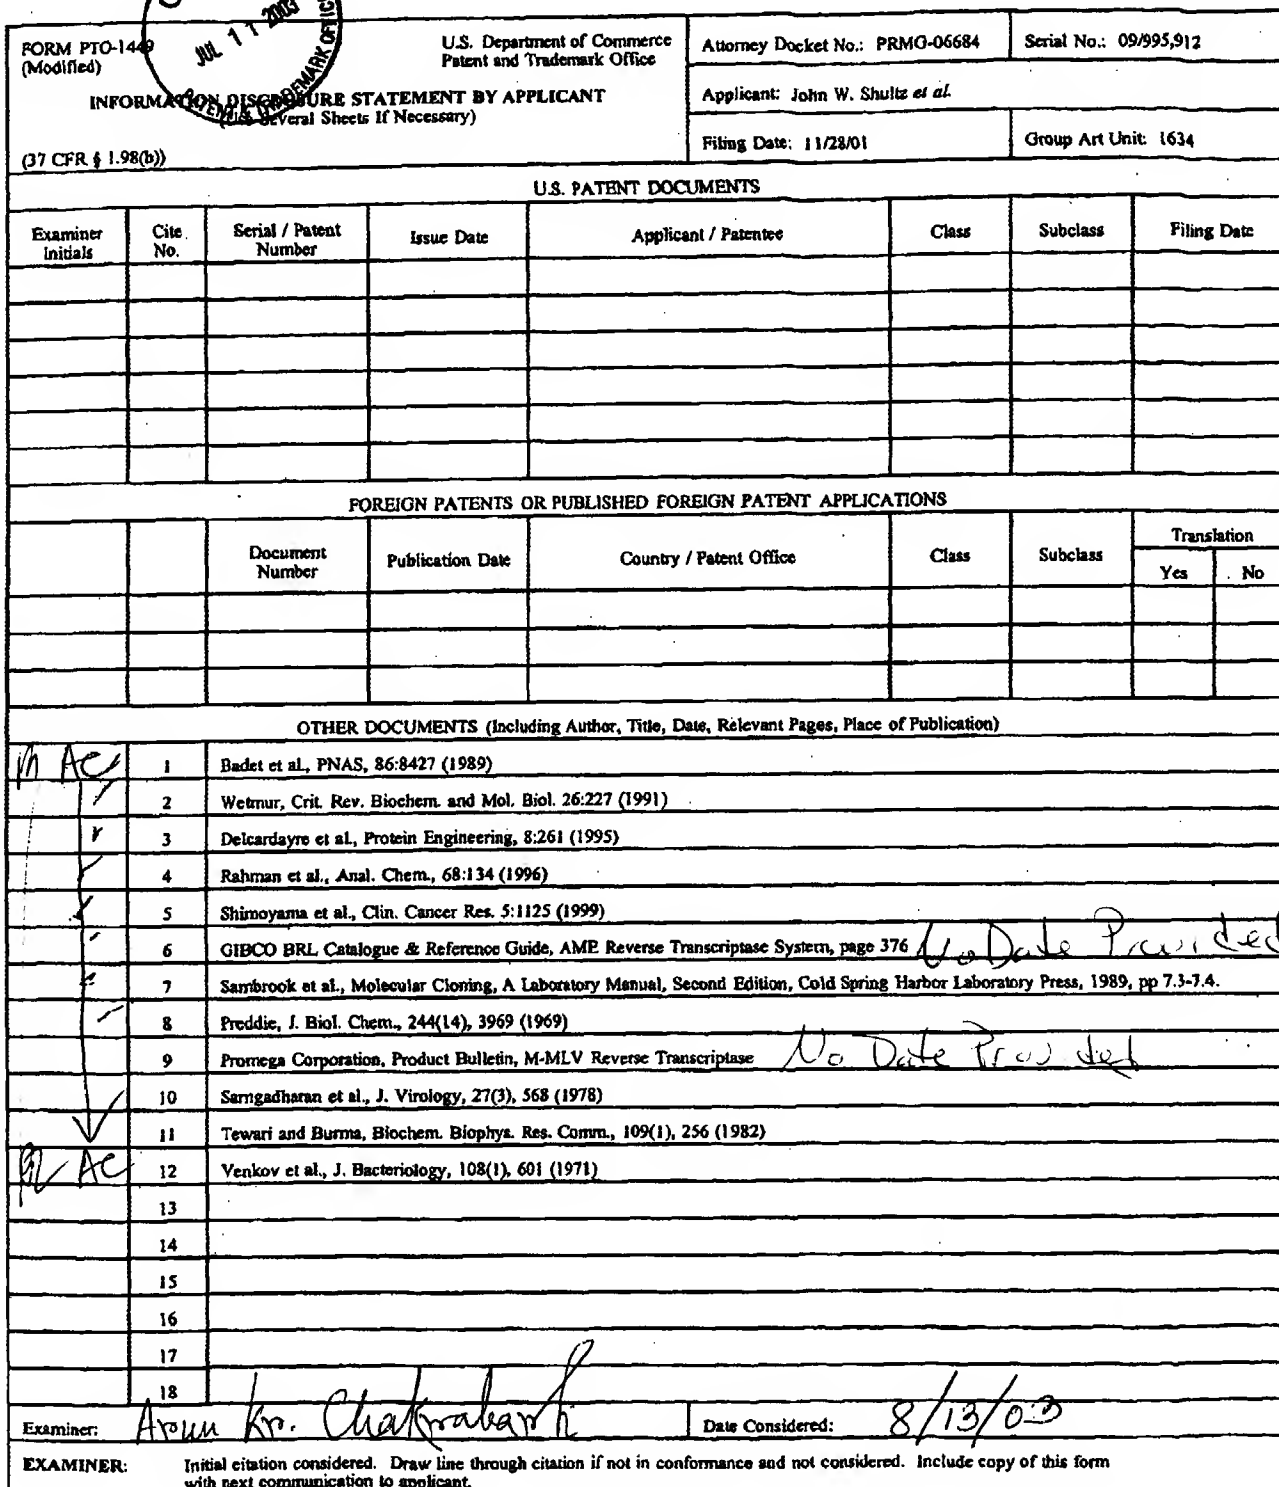 JUL 11 2003
PATENT & TRADEMARK OFFICE
FORM PTO-1449
(Modified)
U.S. Department of Commerce
Patent and Trademark Office
Attorney Docket No.: PRMG-06684
Serial No.: 09/995,912
INFORMATION DISCLOSURE STATEMENT BY APPLICANT
(Use Several Sheets If Necessary)
Applicant: John W. Shultz et al.
(37 CFR § 1.98(b))
Filing Date: 11/28/01
Group Art Unit: 1634
U.S. PATENT DOCUMENTS
Examiner Initials
Cite No.
Serial / Patent Number
Issue Date
Applicant / Patentee
Class
Subclass
Filing Date
FOREIGN PATENTS OR PUBLISHED FOREIGN PATENT APPLICATIONS
Document Number
Publication Date
Country / Patent Office
Class
Subclass
Translation
Yes
No
OTHER DOCUMENTS (Including Author, Title, Date, Relevant Pages, Place of Publication)
AC 1 Badet et al., PNAS, 86:8427 (1989)
2 Wetmur, Crit. Rev. Biochem. and Mol. Biol. 26:227 (1991)
3 Delcardayre et al., Protein Engineering, 8:261 (1995)
4 Rahman et al., Anal. Chem., 68:134 (1996)
5 Shimoyama et al., Clin. Cancer Res. 5:1125 (1999)
6 GIBCO BRL Catalogue & Reference Guide, AMP Reverse Transcriptase System, page 376 No Date Provided
7 Sambrook et al., Molecular Cloning, A Laboratory Manual, Second Edition, Cold Spring Harbor Laboratory Press, 1989, pp 7.3-7.4.
8 Preddie, J. Biol. Chem., 244(14), 3969 (1969)
9 Promega Corporation, Product Bulletin, M-MLV Reverse Transcriptase No Date Provided
10 Sarngadharan et al., J. Virology, 27(3), 568 (1978)
11 Tewari and Burma, Biochem. Biophys. Res. Comm., 109(1), 256 (1982)
AC 12 Venkov et al., J. Bacteriology, 108(1), 601 (1971)
13
14
15
16
17
18
Examiner: Arun Kr. Chakrabarti
Date Considered: 8/13/03
EXAMINER: Initial citation considered. Draw line through citation if not in conformance and not considered. Include copy of this form
with next communication to applicant.